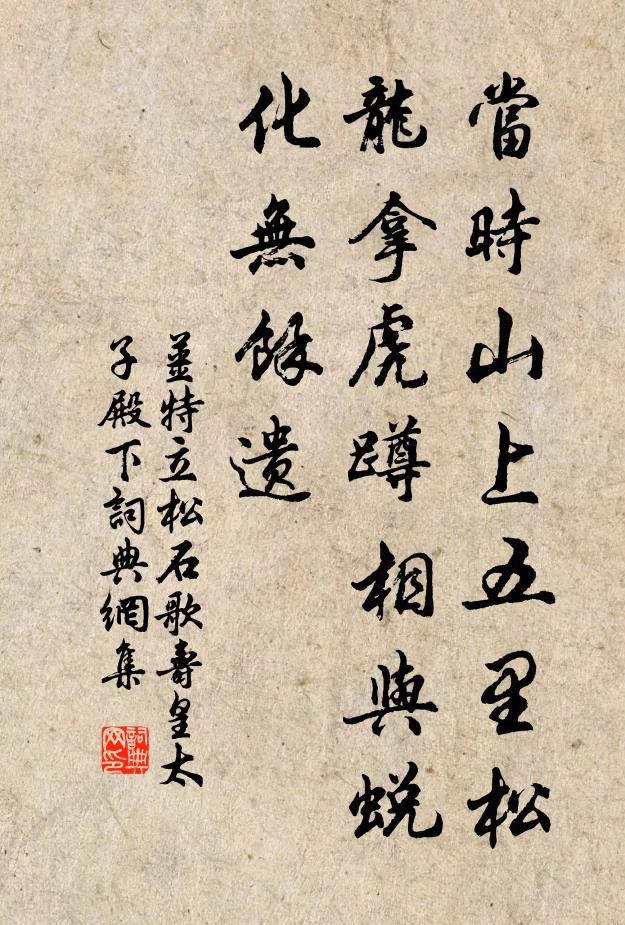 當時山上五里松
龍拿虎蹲相與蛻
化無餘遺
姜特立松石歌壽皇太
子殿下詞典網集
詞典
网印